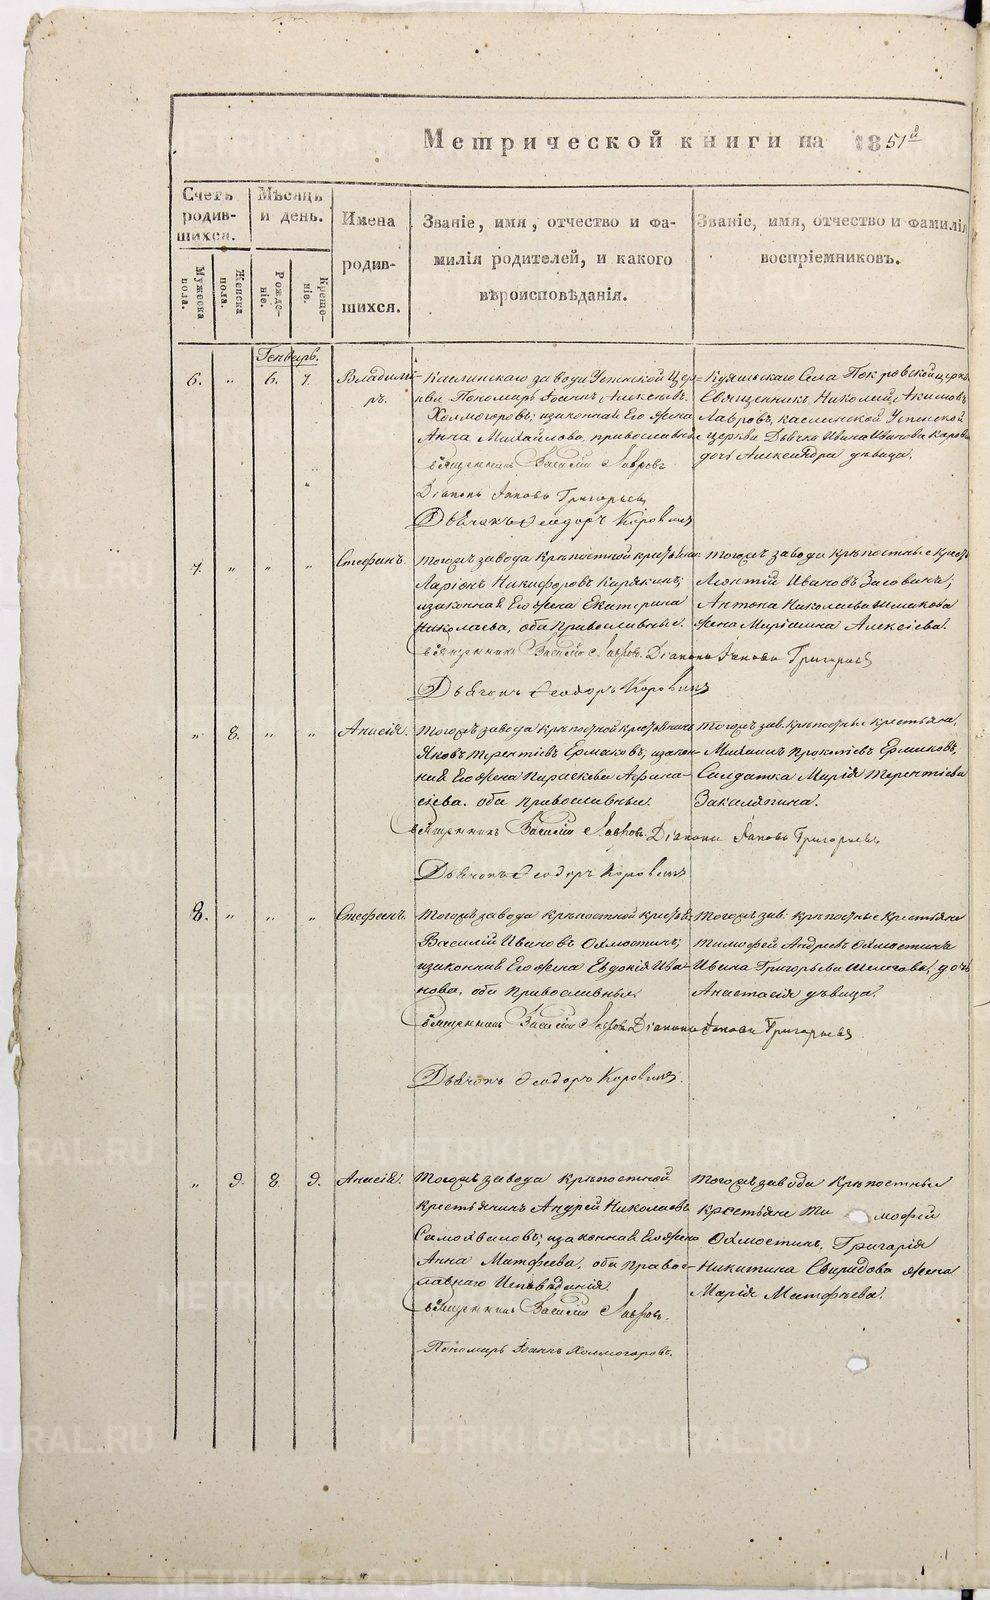 Метрической книги на 1851й
Счетъ родив-шихся.
Мѣсяцъ и день.
Имена родив-шихся.
Званіе, имя, отчество и фа-
милія родителей, и какого
вѣроисповѣданія.
Званіе, имя, отчество и фамилія
воспріемниковъ.
Мужеска пола.
Женска пола.
Рожде-ніе.
Креще-ніе.
Генварь.
6. " 6. 7. Владимі-
ръ.
Каслинскаго завода Успенской Цер-
кви Пономарь Іоаннъ Алексѣевъ
Холмогоровъ; изаконная Его жена
Анна Михайлова, православные
Священникъ Василій Лавровъ
Діаконъ Іаковъ Григорьевъ
Дьячокъ Ѳеодоръ Коровинъ
Куяшскаго Села Покровской церкви
Священникъ Николай Акимовъ
Лавровъ, каслинской Успенской
церкви Дьячка Ивана Иванова Коровина
дочь Александра дѣвица.
7. " " " Стефанъ.
Тогожъ завода крѣпостной
Ларіонъ Никифоровъ Карякинъ;
изаконная Его жена Екатерина
Николаева, оба православные.
Священникъ Василій Лавровъ. Діаконъ Іаковъ Григорьевъ
Дьячокъ Ѳеодоръ Коровинъ
Тогожъ завода крѣпостные
Леонтій Ивановъ
Антона Николаева
жена Маріамна Алексіева.
" 8. " " Анисія.
Тогожъ завода крѣпостной крестьянинъ
Яковъ Терентіевъ Ермаковъ, изакон-
ная Его жена Параскева Афана-
сіева. оба православные.
Священникъ Василій Лавровъ. Діаконъ Іаковъ Григорьевъ
Дьячокъ Ѳеодоръ Коровинъ
Тогожъ зав. крѣпостные крестьяне,
Михаилъ Прокопіевъ Ермаковъ,
Салдатка Марія Терентіева
Закаляпина.
8. " " " Стефанъ.
Тогожъ завода крѣпостной
Василій Ивановъ Охмостинъ;
изаконная Его жена Евдокія Ива-
нова, оба православные.
Священникъ Василій Лавровъ Діаконъ Іаковъ Григорьевъ
Дьячокъ Ѳеодоръ Коровинъ.
Тогожъ зав. крѣпостные крестьяне
Тимофей Андреевъ Охмостинъ
Ивана Григорьева дочь
Анастасія дѣвица.
" 9. 8. 9. Анисія.
Тогожъ завода крѣпостной
крестьянинъ Андрей Николаевъ
Самохваловъ; изаконная Его жена
Анна Матфеева, оба правос-
лавнаго Исповѣданія.
Священникъ Василій Лавровъ.
Пономарь Іоаннъ Холмогоровъ.
Тогожъ завода крѣпостные
крестьяне Ти мофей
Охмостинъ, Григорія
Никитина Свиридова жена
Марія Матфѣева.